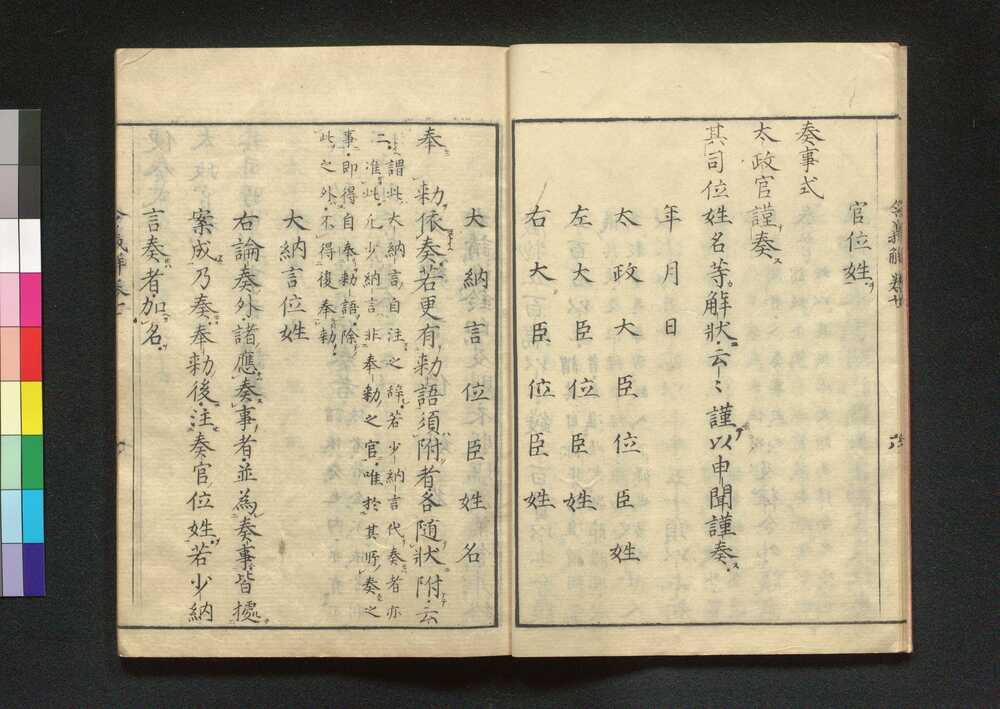 官位姓
奏事式
太政官謹奏
其司位姓名等解狀云〻謹以申聞謹奏
年月日
太政大臣位臣姓
左大臣位臣姓
右大臣位臣姓
大納言位臣姓名
奉勅依奏若更有勅語須附者各随狀附云
謂此大納言自注之辞若少納言代奏者亦
准此凡少納言非奉勅之官唯於其所奏之
事即得自奉勅語除
此之外不得復奉勅
大納言位姓
右論奏外諸應奏事者並為奏事皆據
案成乃奏奉勅後注奏官位姓若少納
言奏者加名